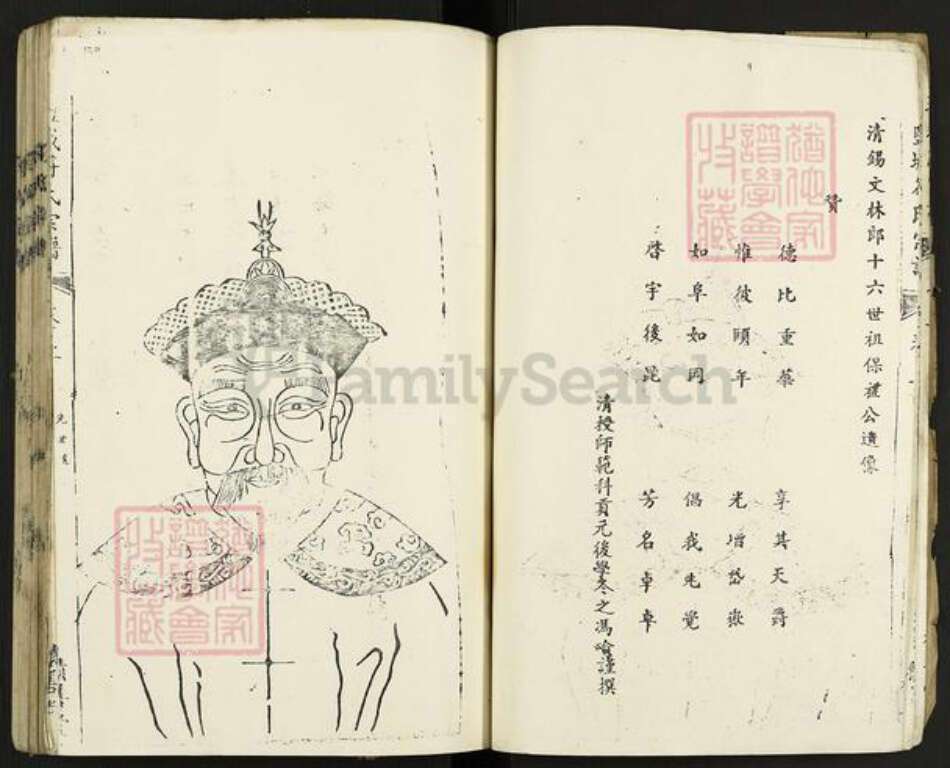 清錫文林郎十六世祖保禮公遺像
贊
德比重華 享其天爵
惟彼頤年 光增岱嶽
如阜如岡 偈我先覺
啓宇後昆 芳名卓卓
清授師範科貢元後學冬之馮喻謹撰
猶他家譜學會收藏
FamilySearch
猶他家譜學會收藏